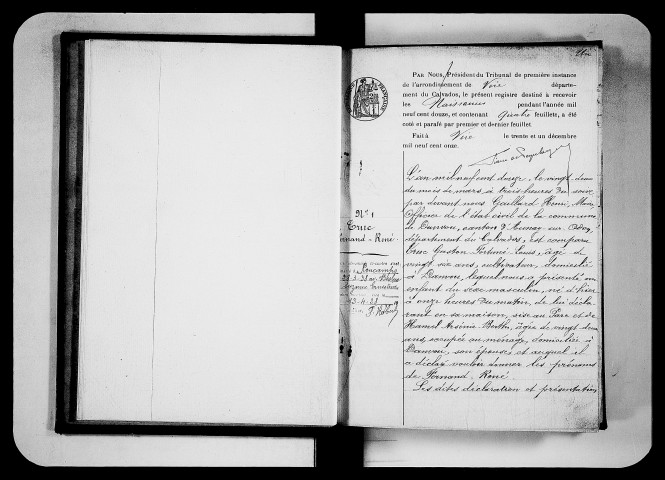 PAR NOUS, Président du Tribunal de première instance
de l'arrondissement de Vire départe-
ment du Calvados, le présent registre destiné à recevoir
les Naissances pendant l'année mil
neuf cent douze, et contenant quatre feuillets, a été
coté et parafé par premier et dernier feuillet.
Fait à Vire le trente et un décembre
mil neuf cent onze.
N° 1
Truc
Fernand-René
L'an mil neuf cent douze, le vingt deux
du mois de mars, à trois heures du soir
par devant nous Gaillard Henri, Maire
Officier de l'état civil de la commune
de Danvou, canton d'Aunay sur Odon
département du Calvados, est comparu
Truc Gaston Fortuné Louis, âgé de
vingt six ans, cultivateur, domicilié
à Danvou, lequel nous a présenté un
enfant du sexe masculin, né d'hier
à onze heures du matin, de lui décla
rant en sa maison, sise au Parc et de
Hamel Arsénie Berthe, âgée de vingt deux
ans, occupée au ménage, domiciliée à
Danvou, son épouse et auquel il
a déclaré vouloir donner les prénoms
de Fernand René
Les dites déclaration et présentation